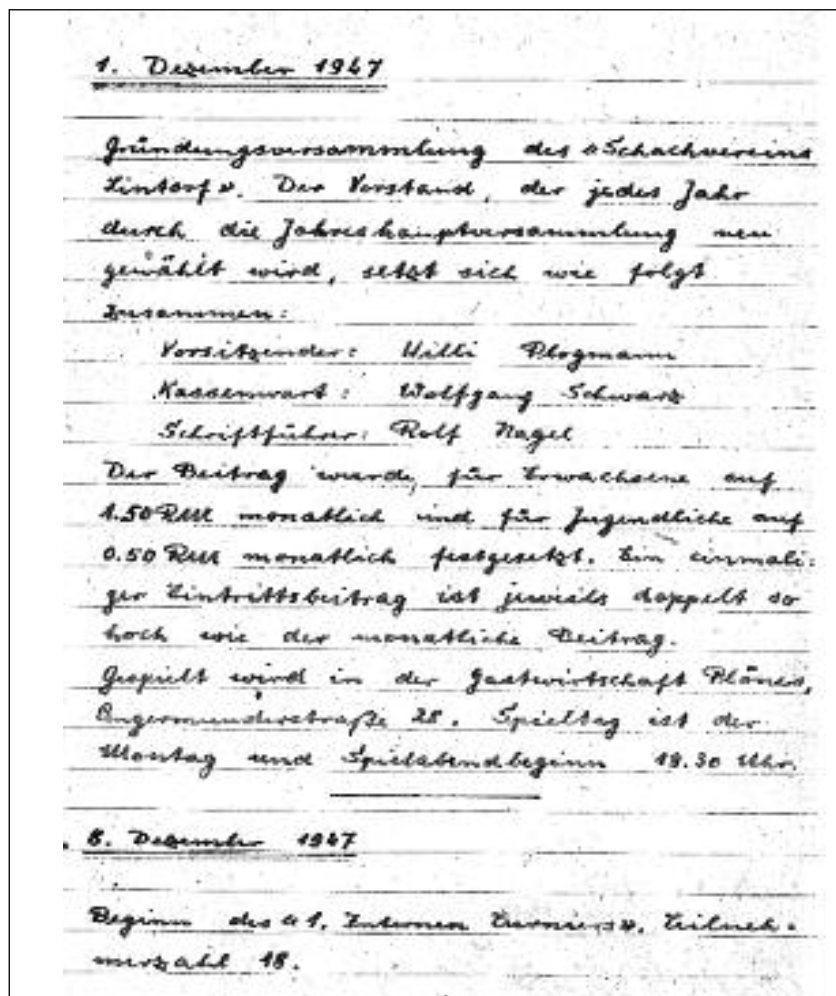 1. Dezember 1947
Gründungsversammlung des "Schachvereins
Lintorf". Der Vorstand, der jedes Jahr
durch die Jahreshauptversammlung neu
gewählt wird, setzt sich wie folgt
zusammen:
Vorsitzender: Willi Plogmann
Kassenwart: Wolfgang Schwarz
Schriftführer: Rolf Nagel
Der Beitrag wurde für Erwachsene auf
1.50 RM monatlich und für Jugendliche auf
0.50 RM monatlich festgesetzt. Ein einmali-
ger Eintrittsbeitrag ist jeweils doppelt so
hoch wie der monatliche Beitrag.
Gespielt wird in der Gastwirtschaft
Angermunderstraße 28. Spieltag ist der
Montag und Spielabendbeginn 19.30 Uhr.
8. Dezember 1947
Beginn des "1. Internen Turniers". Teilneh-
merzahl 18.